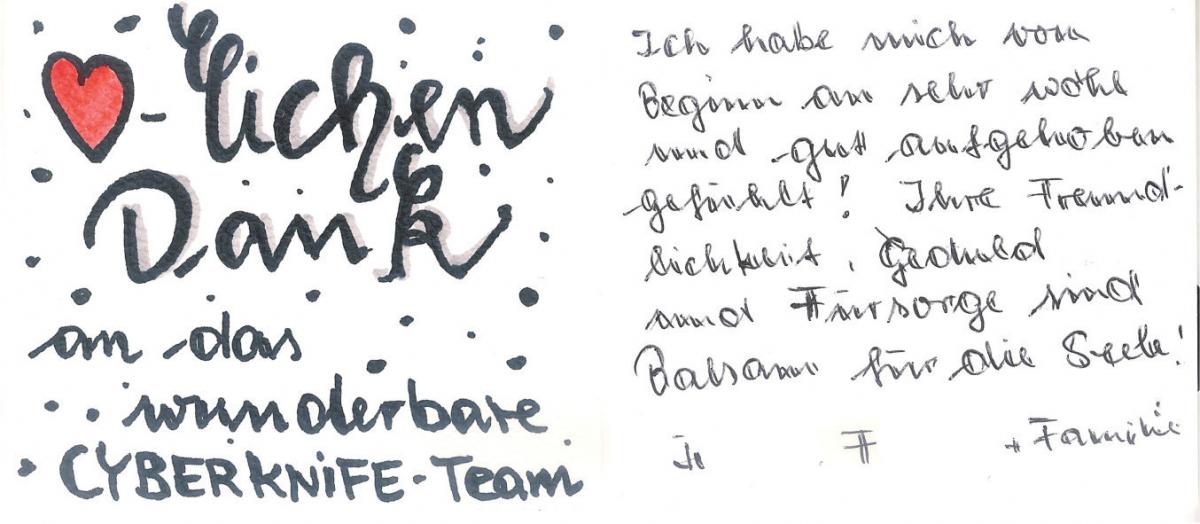 ❤-lichen
Dank
an das
wunderbare
CYBERKNiFE-Team
Ich habe mich von
Beginn an sehr wohl
und gut aufgehoben
gefühlt! Ihre Freund-
lichkeit, Geduld
und Fürsorge sind
Balsam für die Seele!
F
+ Familie